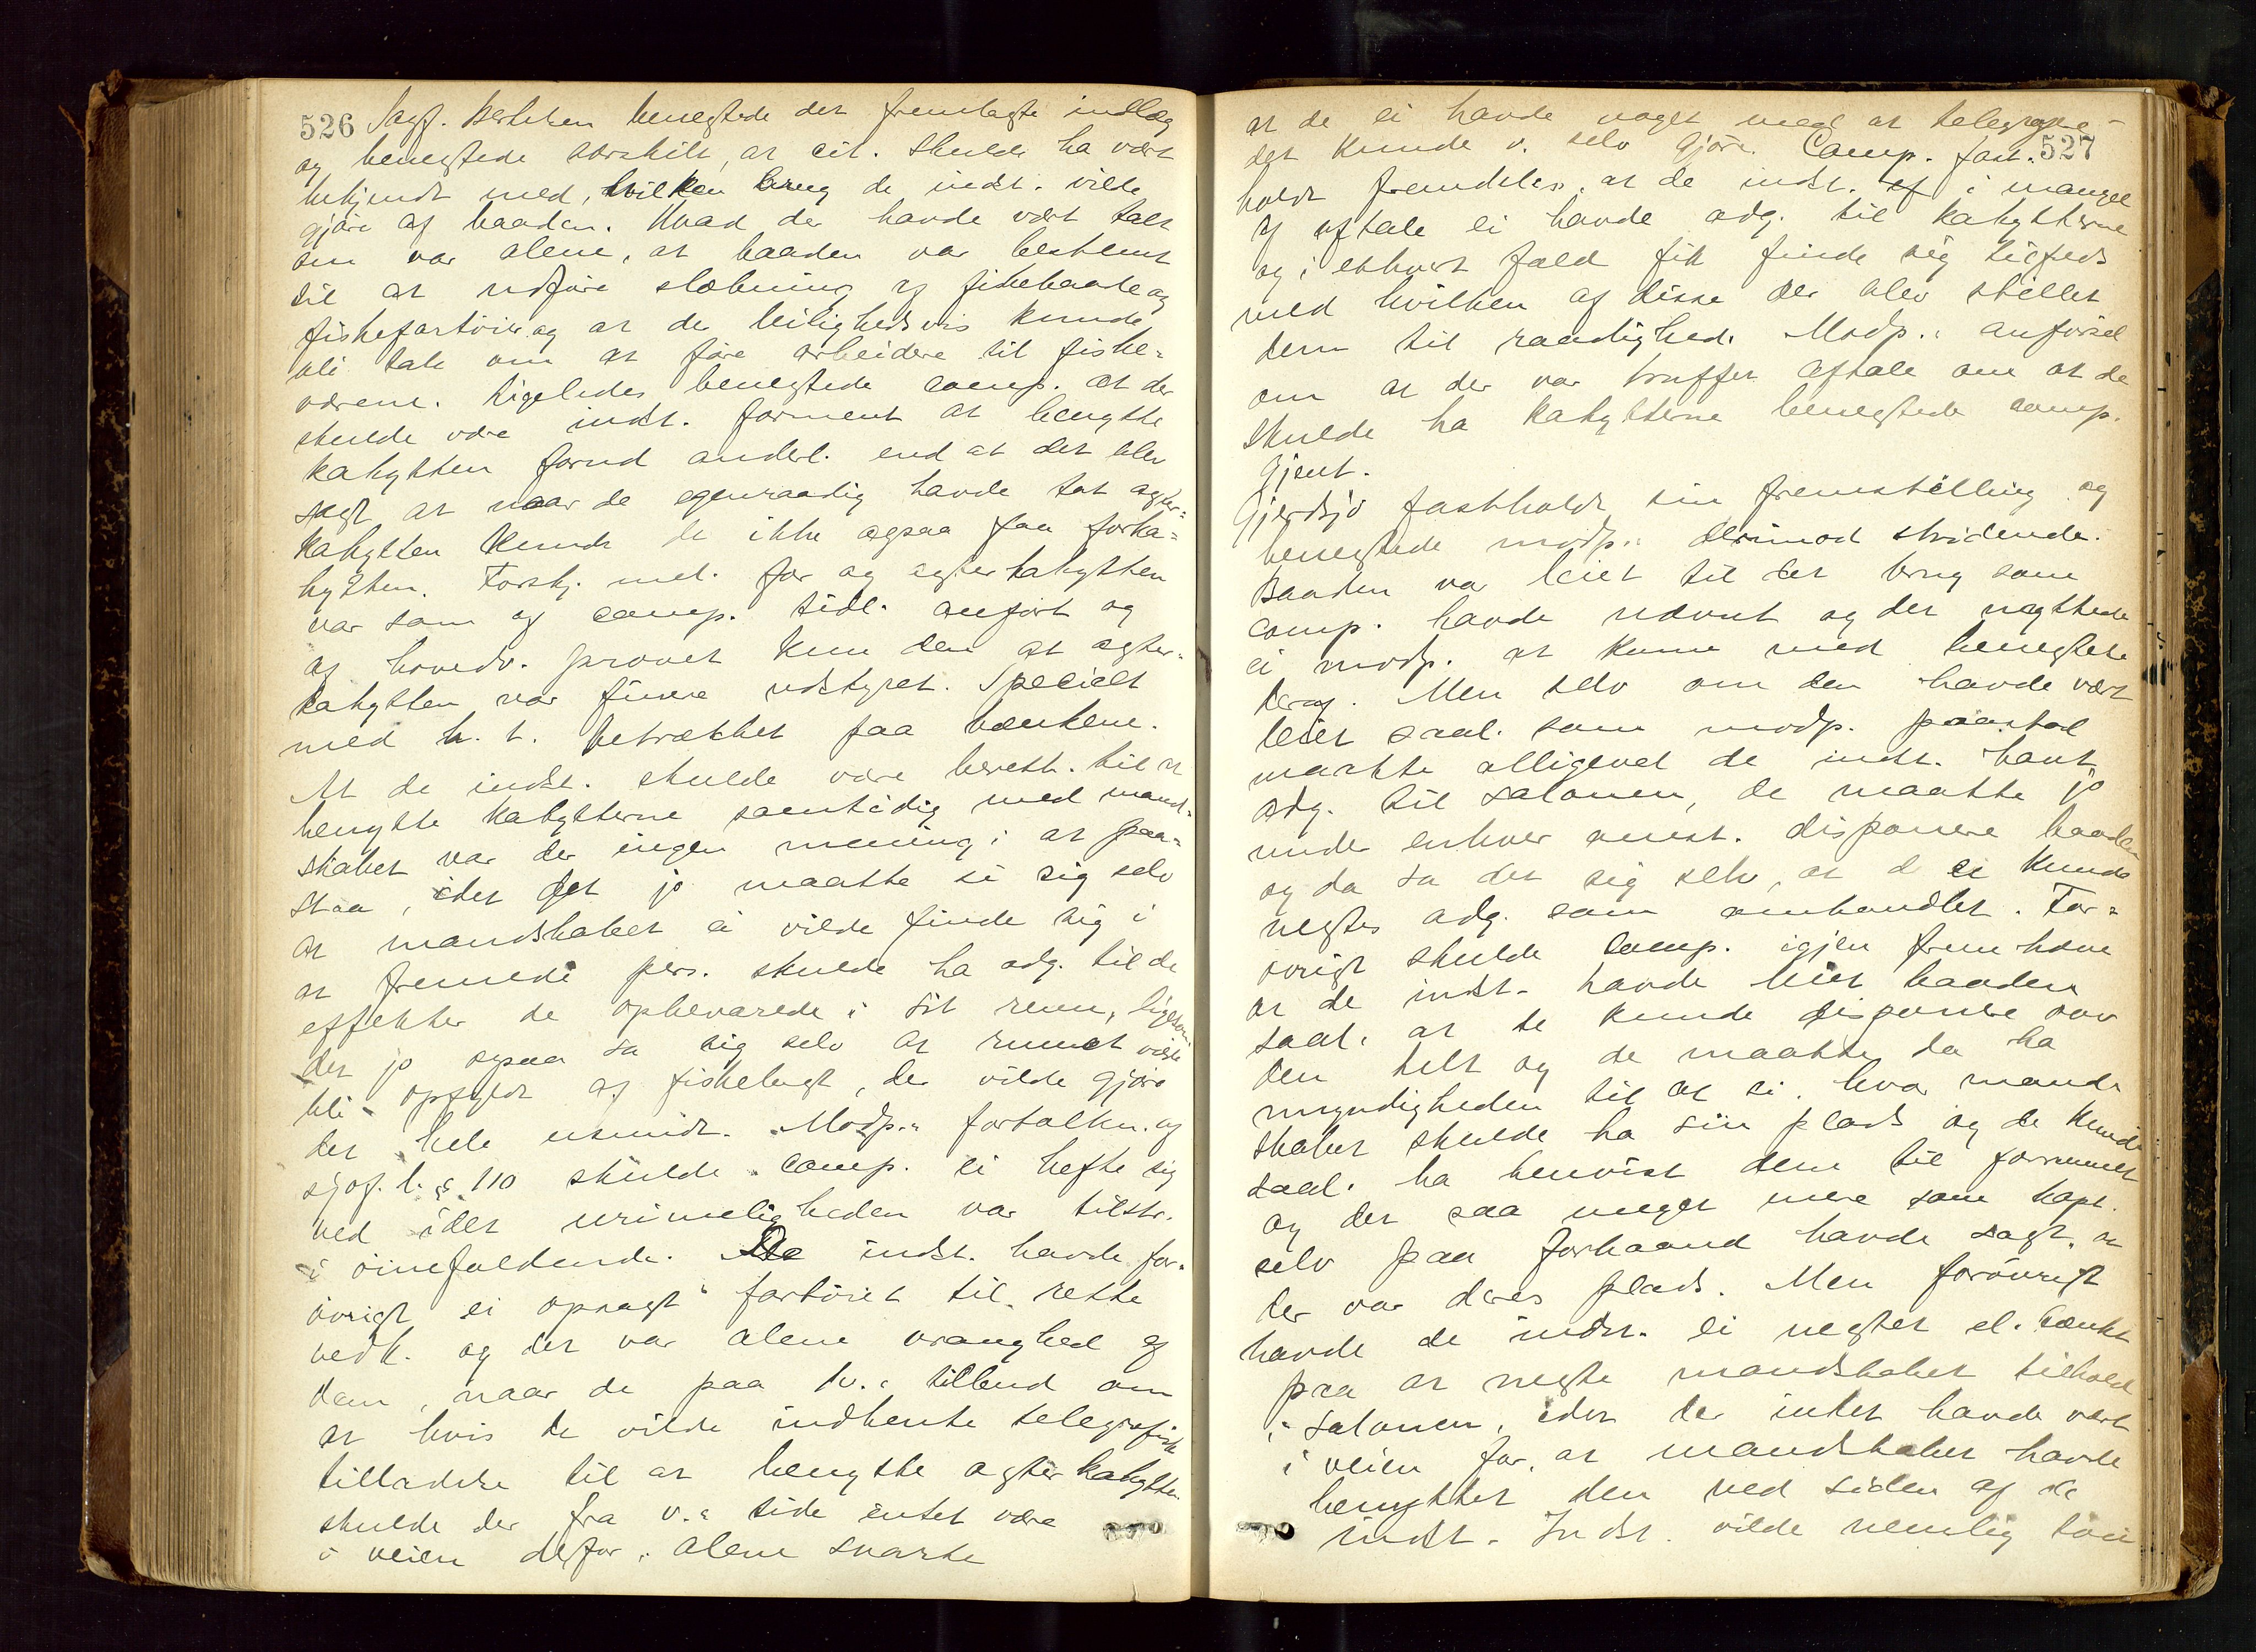 526 Sagf. Bertelsen benegtede det fremlagte indlæg
og benegtede særskilt, at cit. skulde ha vært
bekjendt med, hvilken brug de indst. vilde
gjøre af baaden. Hvad der havde vært talt
om var alene, at baaden var bestemt
til at udføre slæbning af fiskebaade og
fiskefartøier og at der leilighedsvis kunde
bli tale om at føre arbeidere til fiske-
værene. Ligeledes benegtede comp. at der
skulde være indst. forment at benytte
kahytten forud anderl. end at det blev
sagt at naar de egenraadig havde tat agter-
kahytten kunde de ikke ogsaa faa forka-
hytten. Forskj. mel. for og agterkahytten
var som af comp. tidl. anført og
af hovedv. provet kun den at agter-
kahytten var finere udstyret. Specielt
med h. t. betrækket paa bænkene.
At de indst. skulde være berett. til at
benytte kahytterne samtidig med mand-
skabet var der ingen mening i at paa-
staa, idet det jo maatte si sig selv
at mandskabet ei vilde finde sig i
at fremede pers. skulde ha adg. til de
effekter de opbevarede i sit rum, ligesom
det jo ogsaa sa sig selv at rummet vilde
bli opfyldt af fiskelugt, der vilde gjøre
det hele usundt. Modp.s fortolkn. af
sjøf. l. § 110 skulde comp. ei hefte sig
ved idet urimeligheden var tilstr.
i øinefaldende. De indst. havde for-
øvrigt ei opsagt fartøiet til rette
vedk. og det var alene vranghed af
dem, naar de paa hv.s tilbud om
at hvis de vilde indhente telegrafisk
tilladelse til at benytte agterkahytten
skulde der fra v.s side intet være
i veien derfor, alene svarte
at de ei havde noget med at telegrafere-
det kunde v. selv gjøre. Comp. fast- 527
holdt fremdeles at de indst. i mangel
af aftale ei havde adg. til kahytterne
og i ethvert fald fik finde sig tilfreds
med hvilken af disse der blev stillet
dem til raadighed. Modp.s anførsel
om at der var truffet aftale om at de
skulde ha kahytterne benegtede comp.
gjent.
Gjerdsjø fastholdt sin fremstilling og
benegtede modp.s derimod stridende.
Baaden var leiet til det brug som
comp. havde nævnt og det nyttede
ei modp. at komme med benegtelse
deraf. Men selv om den havde vært
leiet saal. som modp. paastod
maatte alligevel de indst. havt
adg. til salonen, de maatte jo
under enhver omst. disponere baaden
og da sa det sig selv, at de ei kunde
negtes adg. som omhandlet. For-
øvrigt skulde comp. igjen fremhæve
at de indst. havde leiet baaden
saal. at de kunde disponere over
den helt og de maatte da ha
myndigheden til at si, hvor mand-
skabet skulde ha sin plads og de kunde
saal. ha henvist dem til forrummet
og det saa meget mere som kapt.
selv paa forhaand havde sagt, at
der var deres plads. Men forøvrigt
havde de indst. ei negtet el. tænkt
paa at negte mandskabet tilhold
i salonen, idet der intet havde vært
i veien for, at mandskabet havde
benyttet den ved siden af de
indst. Indst. vilde nemlig